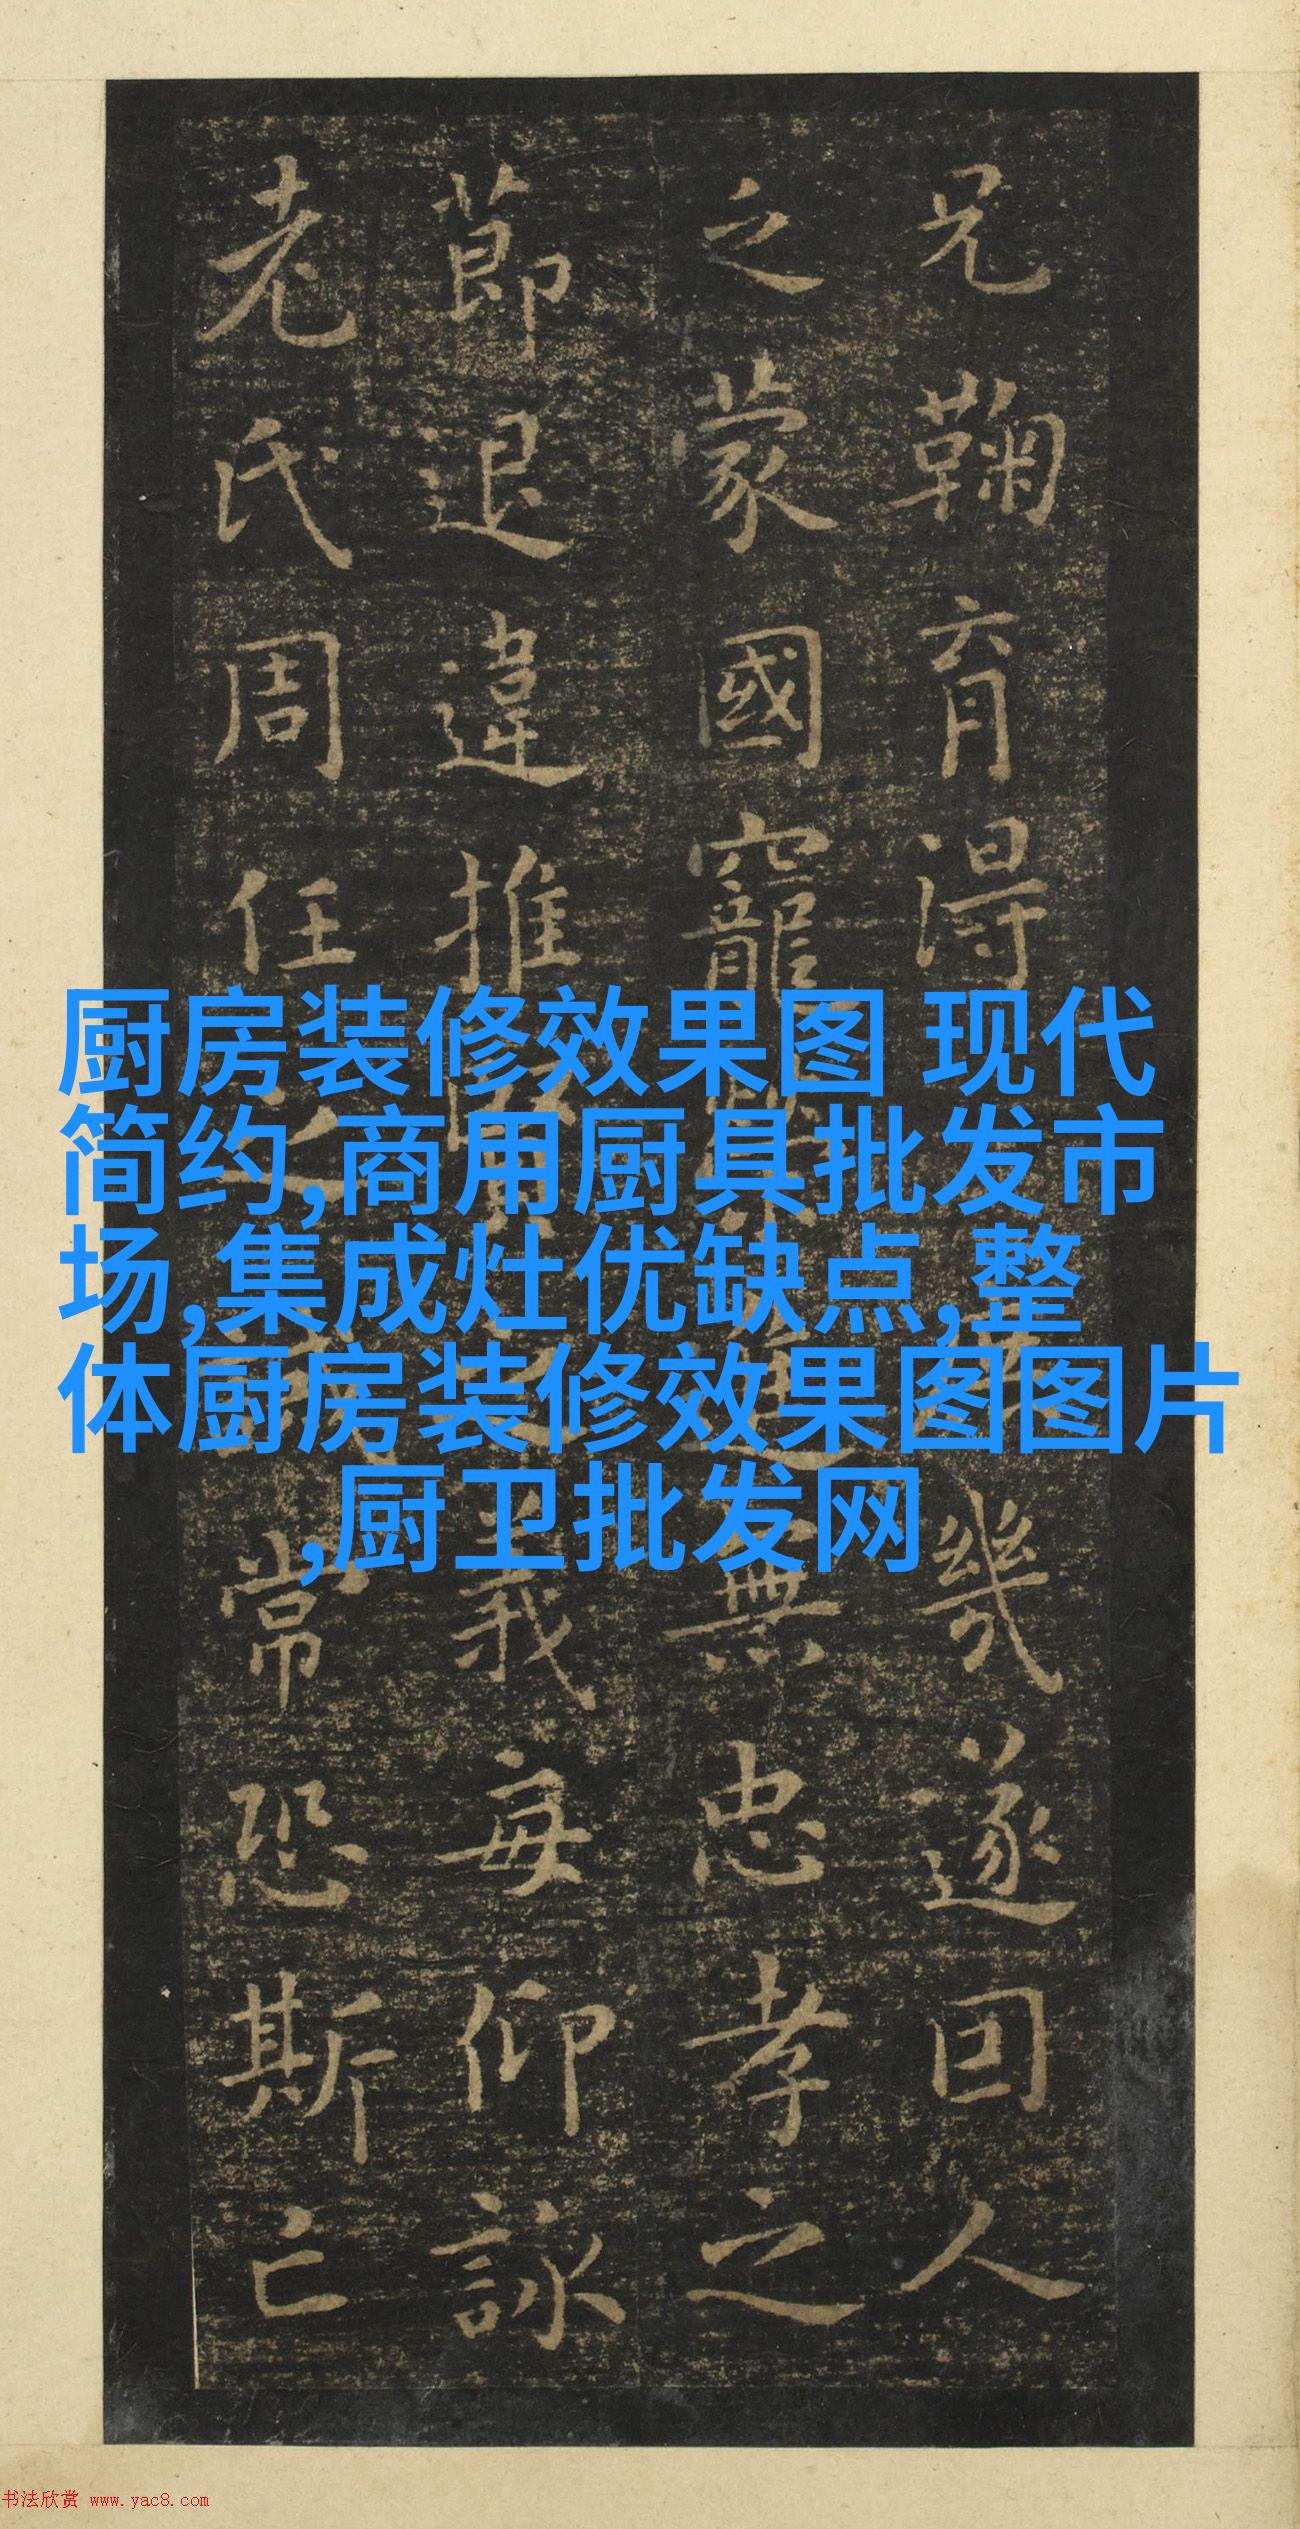 兄鞠育得幾遂回人
之蒙國寵無忠孝之
莭退違推義每仰詠
老氏周任之誡常恐斯亡
厨房装修效果图 现代
简约,商用厨具批发市
场,集成灶优缺点,整
体厨房装修效果图图片
,厨卫批发网
书法欣赏 www.yac8.com